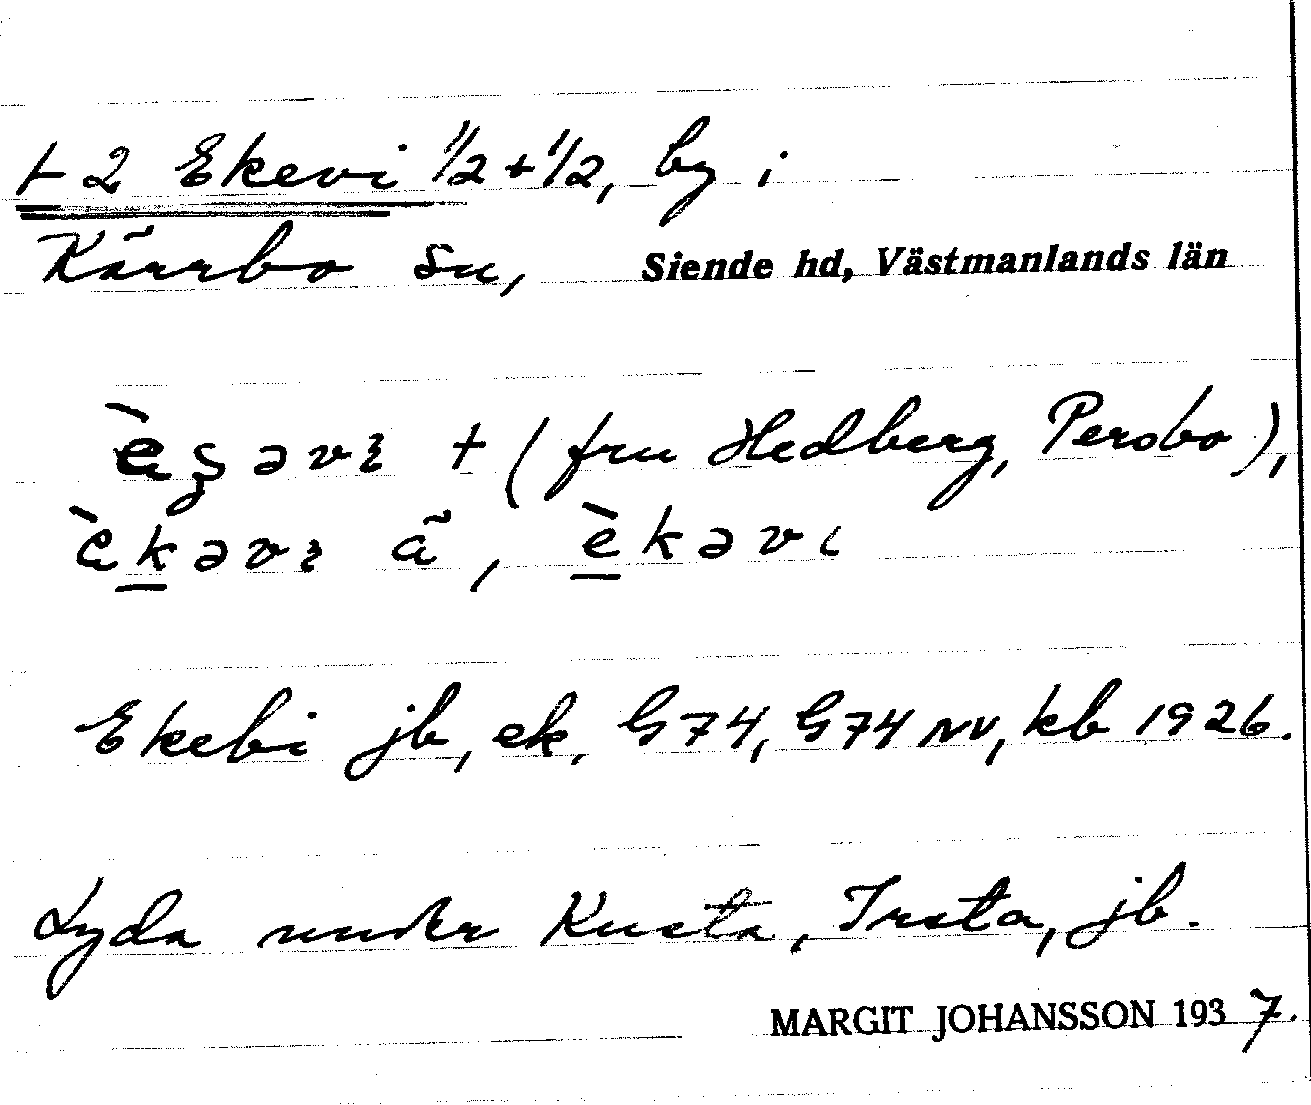 1-2 Ekevi 1/2 + 1/2, by i
Kärrbo sn, Siende hd, Västmanlands län
è̠ʂəvı + (fru Hedberg, Persbo),
èk̠əvı ã, è̠kəvɩ
Ekebi jb, ek, G74, G74 NV, kb 1926.
Lyda under Kusta, Irsta, jb.
MARGIT JOHANSSON 1937.